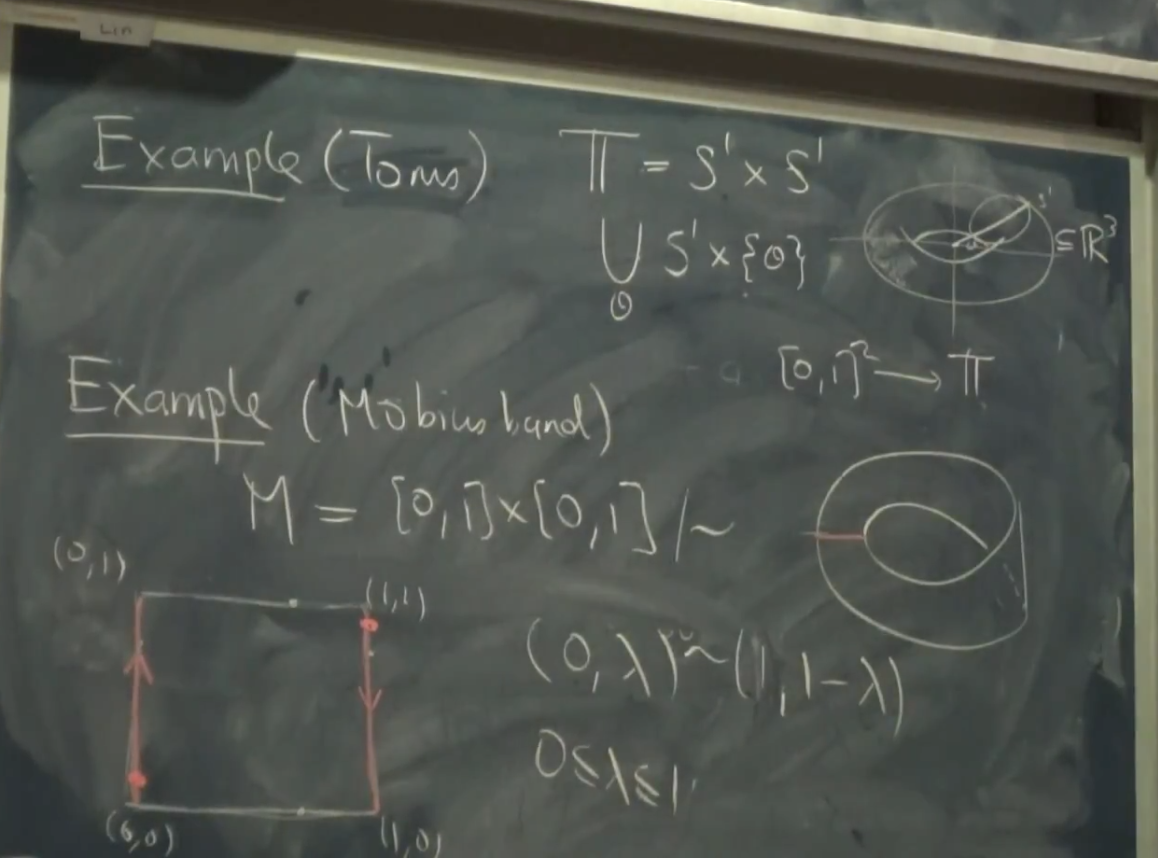 Lin
Example (Torus) 𝕋 = S¹ × S¹
⋃ S¹ × {θ}
θ
S¹
⊆ ℝ³
[0,1]² → 𝕋
Example (Möbius band)
M = [0,1]×[0,1] / ~
(0,1)
(1,1)
(0,λ) ~ (1,1-λ)
0≤λ≤1
(0,0)
(1,0)